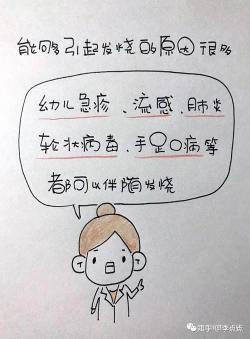 能够引起发烧的原因很多
幼儿急疹、流感、肺炎
轮状病毒、手足口病等
都可以伴随发烧